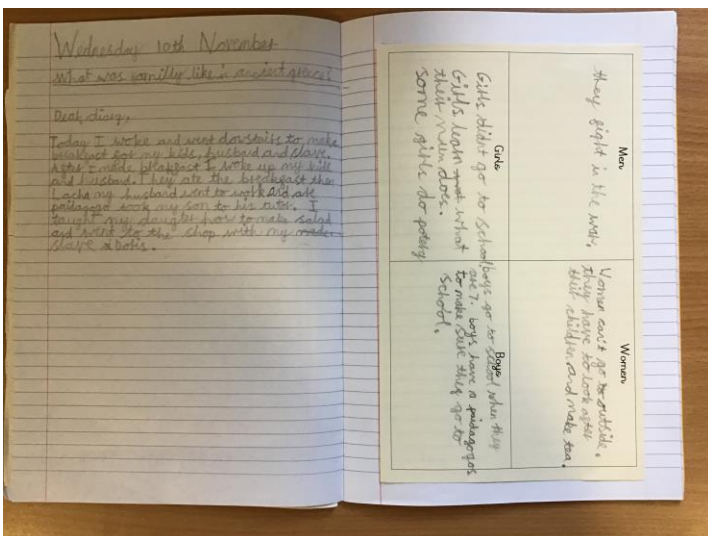 Wednesday 10th November
What was familly like in ancient greece?
Dear diary,
Today I woke and went dowstairs to make
breakfast for my kids, husband and slave.
After I made breakfast I woke up my kids
and husband. They ate the breakfast then
my husband went to work and
took my son to his tutor. I
taught my daughter how to make salad
and went to the shop with my made
slave
Men
they fight in the war.
Women
Women can't go to outside.
they have to look after
their children and make tea.
Girls
Girls didnt go to school.
Girls learn what
their mum does.
some girls do potery
Boys
boys go to school when they
are 7. boys have a paidagogos
to make sure they go to
school.